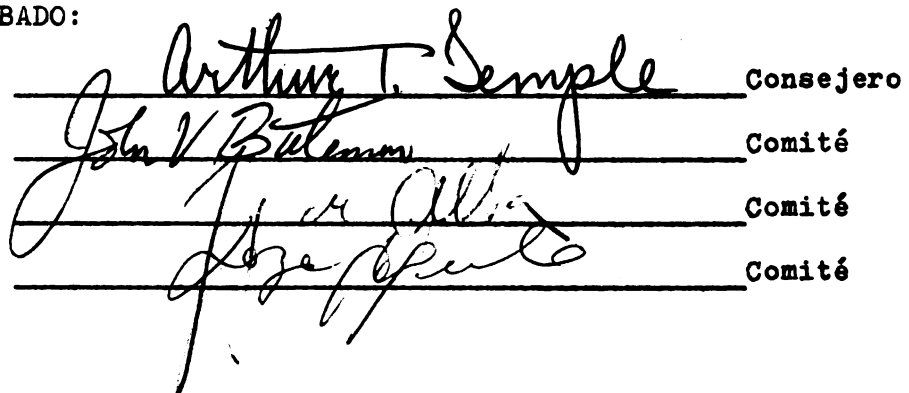 BADO:
Arthur T. Temple Consejero
John V Bateman Comité
Comité
Comité